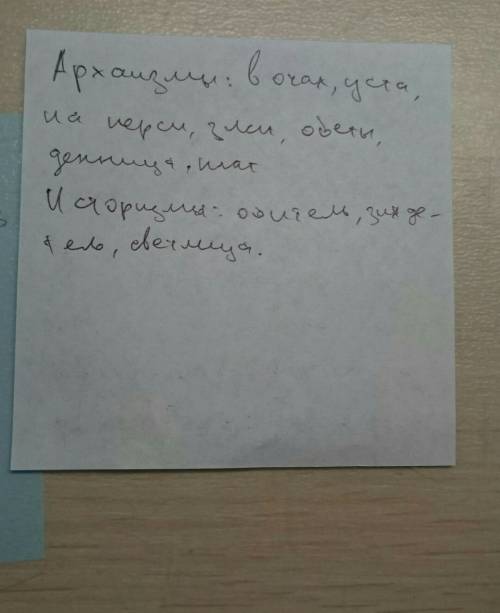 Архаизмы: в очах, уста,
на перси, злси, обеты,
денница, тат
Историзмы: обитель, зижде-
тель, светлица.